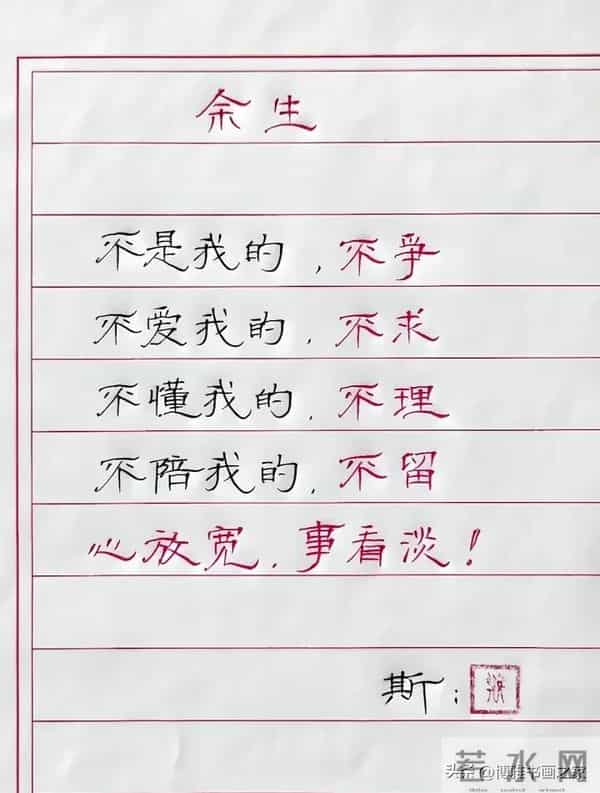 余生
不是我的，不争
不爱我的，不求
不懂我的，不理
不陪我的，不留
心放宽，事看淡！
斯：
若水网
头条@博雅书画之家